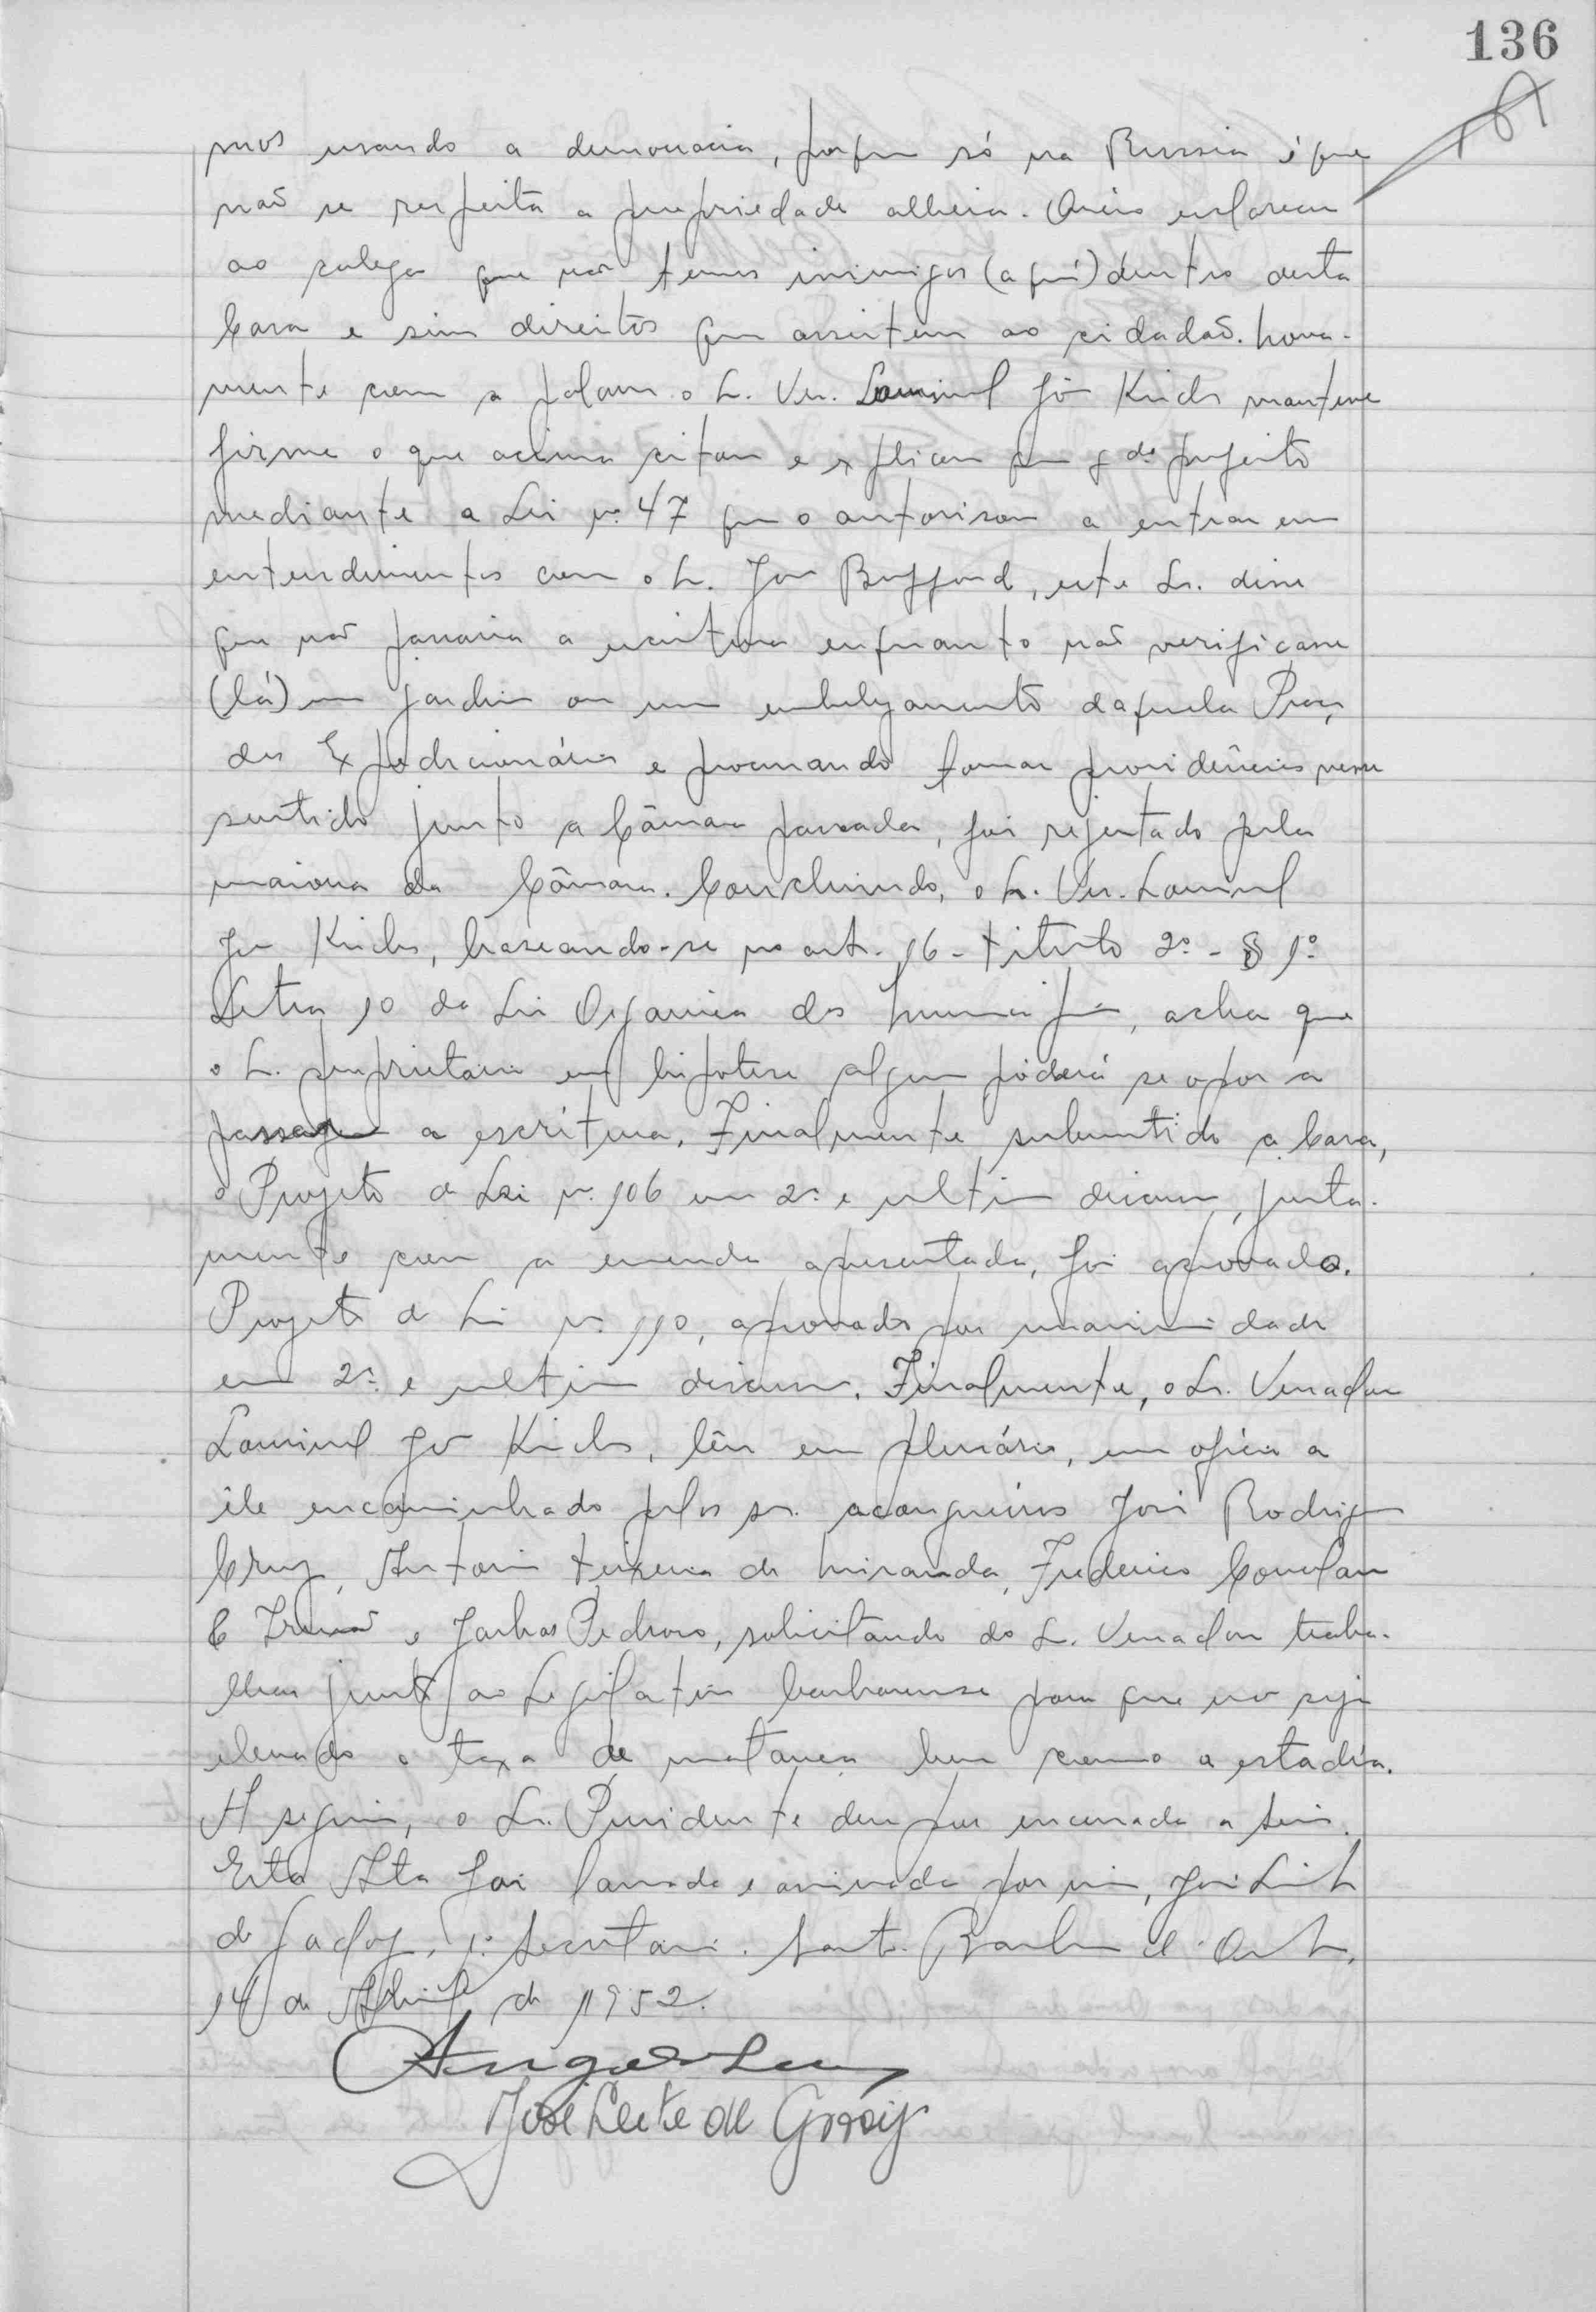 136
mos usando a democracia, porque só na Russia é que
não se respeita a propriedade alheia. Quero esclarecer
ao colega que não temos inimigos (aqui) dentro desta
Casa e sim direitos que assistem ao cidadão. Nova-
mente com a palavra o Sr. Ver. Lourival José Kirche manteve
firme o que acima citou e explicou que qdo prefeito
mediante a Lei nº 47 que o autorisou a entrar em
entendimentos com o Sr. José Bufford, este Sr. disse
que não passaria a escritura enquanto não verificasse
(lá) um jardim ou um embelezamento daquela Praça
dos Expedicionários e procurando tomar providências nesse
sentido junto a Câmara passada, foi rejeitado pela
maioria da Câmara. Concluindo, o Sr. Ver. Lourival
José Kirche, baseando-se no art. 16 - titulo 2º - § 1º
Letra 10 da Lei Organica dos Municipios, acha que
o Sr. proprietario em hipotese alguma poderá se opor a
passagem a escritura. Finalmente submetido a Casa,
o Projeto de Lei nº 106 em 2ª e ultima discussão, junta-
mente com a emenda apresentada, foi aprovado.
Projeto de Lei nº 110, aprovado por unanimidade
em 2ª e ultima discussão. Finalmente, o Sr. Vereador
Lourival José Kirche, lêu em plenário, um oficio a
êle encaminhado pelos srs. açougueiros José Rodrigues
Cruz, Antonio Teixeira de Miranda, Frederico
& Irmão e Jarbas Pedroso, solicitando do Sr. Vereador traba-
lhar junto ao Legislativo barbarense para que não seja
elevado a taxa de matança bem como a estadia.
A seguir, o Sr. Presidente deu por encerrada a sessão.
Esta Ata foi lavrada e assinada por mim, José Leite
de Godoy, 1º Secretario. Santa Barbara d'Oeste,
14 de Abril de 1952.
José Leite de Godoy